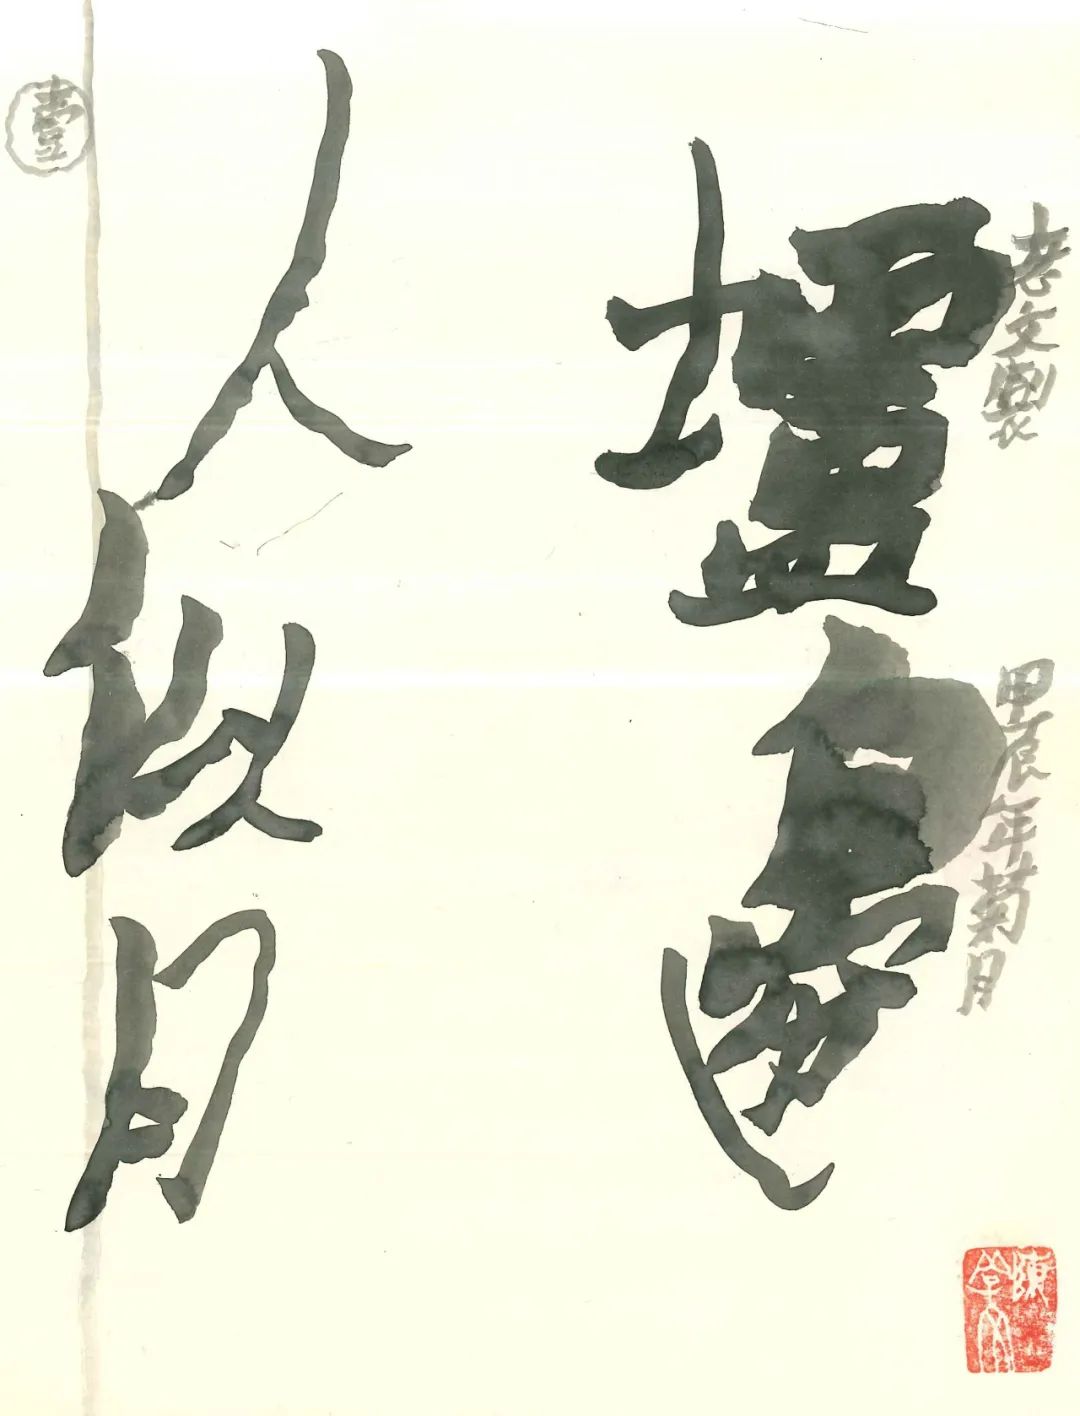 老文製 甲辰年菊月
壚邊
人似月
壹